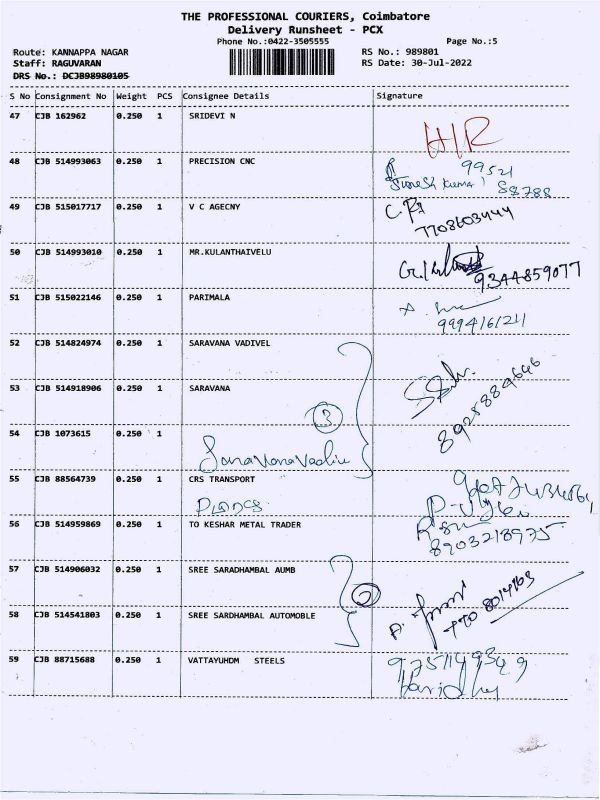 THE PROFESSIONAL COURIERS, Coimbatore
Delivery Runsheet - PCX
Phone No.:0422-3505555 Page No.:5
Route: KANNAPPA NAGAR RS No.: 989801
Staff: RAGUVARAN RS Date: 30-Jul-2022
DRS No.: DCJB98980105
S No Consignment No Weight PCS Consignee Details Signature
47 CJB 162962 0.250 1 SRIDEVI N
48 CJB 514993063 0.250 1 PRECISION CNC 99521
88788
49 CJB 515017717 0.250 1 V C AGECNY
7708603444
50 CJB 514993010 0.250 1 MR.KULANTHAIVELU
9344859077
51 CJB 515022146 0.250 1 PARIMALA
9994161211
52 CJB 514824974 0.250 1 SARAVANA VADIVEL
53 CJB 514918906 0.250 1 SARAVANA
8925884646
3
54 CJB 1073615 0.250 1
55 CJB 88564739 0.250 1 CRS TRANSPORT
56 CJB 514959869 0.250 1 TO KESHAR METAL TRADER
8903218975
57 CJB 514906032 0.250 1 SREE SARADHAMBAL AUMB
2
58 CJB 514541803 0.250 1 SREE SARDHAMBAL AUTOMOBLE
59 CJB 88715688 0.250 1 VATTAYUHDM STEELS